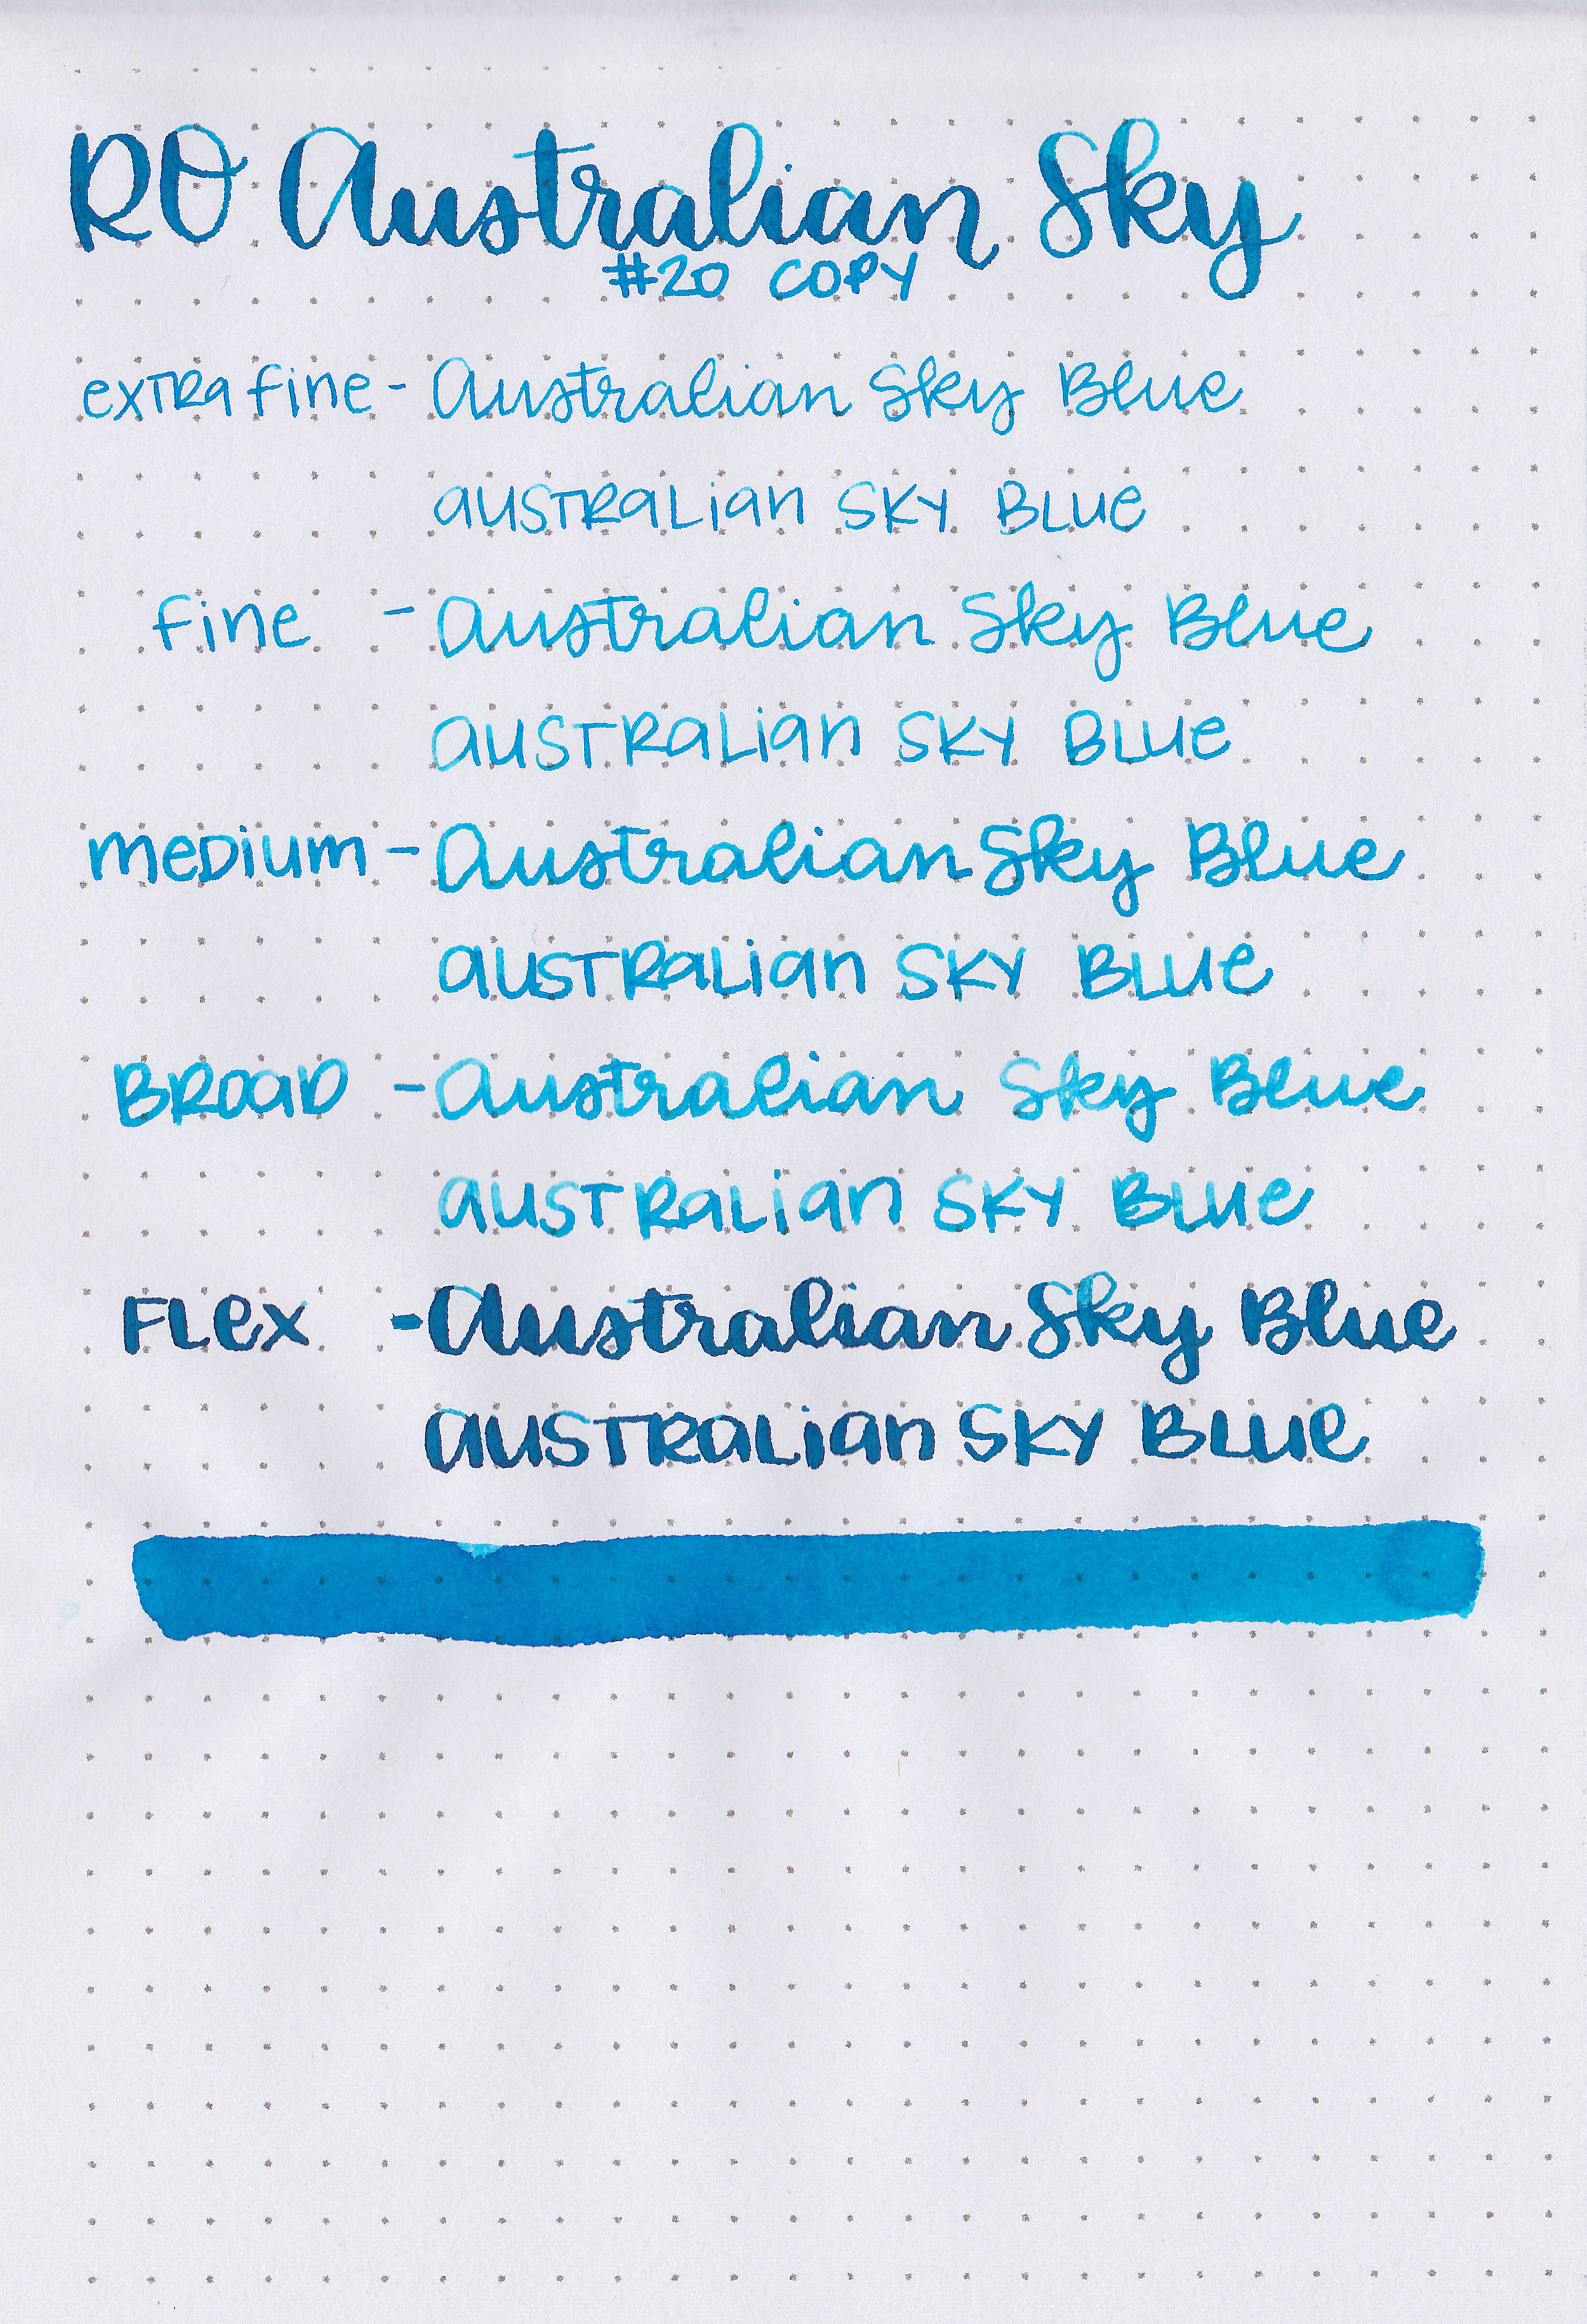 RO Australian Sky
#20 COPY
extra fine - Australian Sky Blue
Australian Sky Blue
fine - Australian Sky Blue
Australian Sky Blue
medium - Australian Sky Blue
Australian Sky Blue
Broad - Australian Sky Blue
Australian Sky Blue
Flex - Australian Sky Blue
Australian Sky Blue